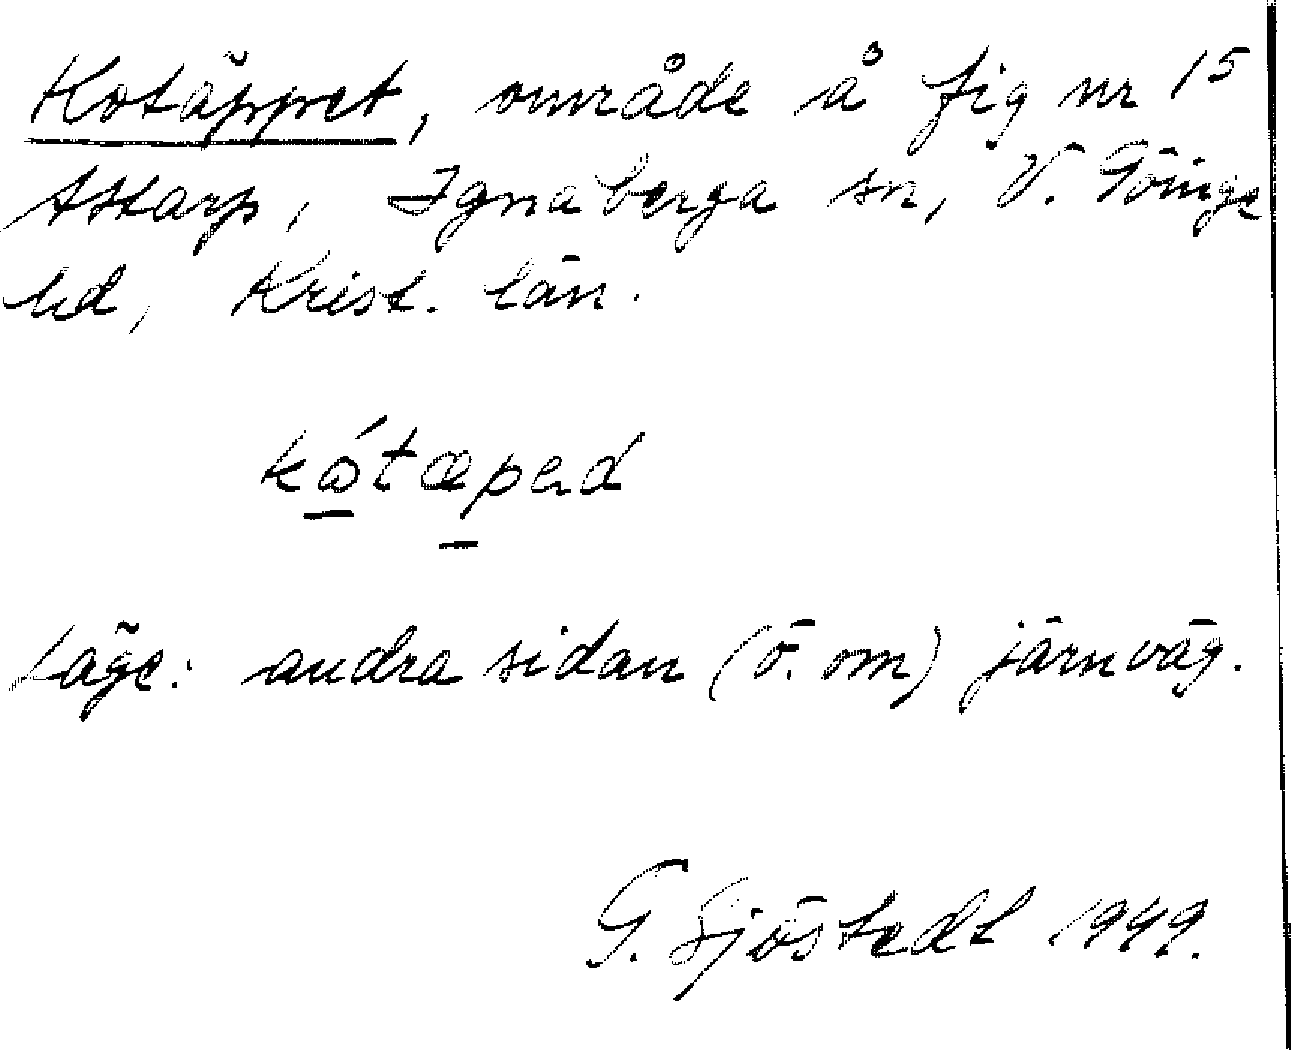 Kotäppet, område å fig nr 15
Attarp, Ignaberga sn, V. Göinge
hd, Krist. län.
kåtæped
Läge: andra sidan (ö. om) järnväg.
G. Sjöstedt 1949.